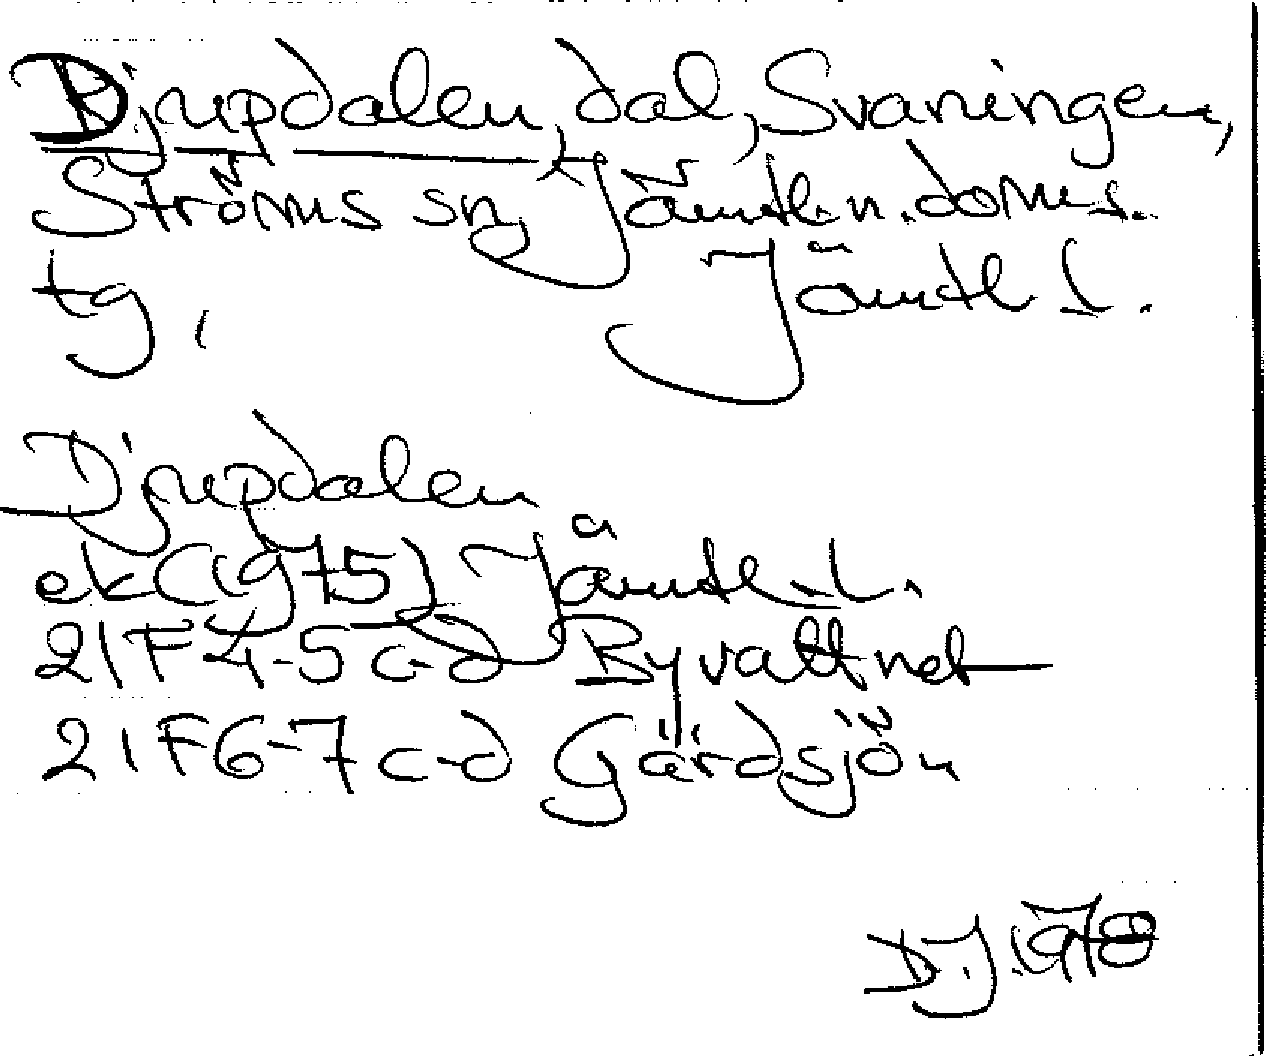 Djupdalen, dal, Svaningen,
Ströms sn, Jämtl. n. doms.
tg,
Jämtl l.
Djupdalen
ek (1975) Jämtl. l.
21F4-5 c-d Byvattnet
21F6-7 c-d Gärdsjön
DJ. 1978